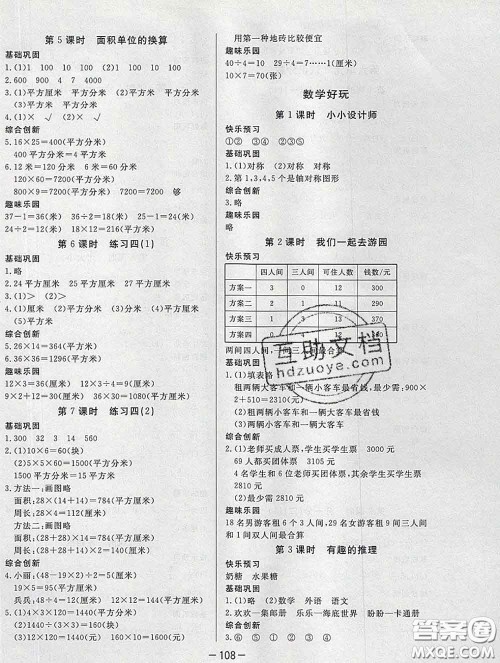 第5课时　面积单位的换算
基础巩固
1.(1)1　100　10　100　(2)1　100　100
2.600　900　4　7　4000　3
3.(1)平方厘米　平方厘米　平方厘米　平方米
(2)平方米　平方分米
4.(1)×　(2)×
综合创新
5.16×25=400(平方分米)
400平方分米=4平方米
6.12米=120分米　6米=60分米
120×60=7200(平方分米)
800×9=7200(平方分米)　7200=7200　够
趣味乐园
37-1=36(米)　36÷2=18(米)　25-1=24(米)
24÷2=12(米)　18×12=216(平方米)
第6课时　练习四(1)
基础巩固
1.略
2.24平方厘米　25平方厘米　27平方厘米
3.(1)>　(2)>
4.(1)平方厘米　(2)平方米　(3)平方分米
综合创新
5.26×14=364(平方米)
6.36×36=1296(平方米)
趣味乐园
12×3=36(厘米)　9×4=36(厘米)
9×2+12=30(厘米)　36×30=1080(平方厘米)
第7课时　练习四(2)
基础巩固
1.300　32　3　14　560
2.(1)60÷(10-4)=10(块)
(2)15×10×10=1500(平方分米)
1500平方分米=15平方米
3.方法一:画图略
面积:28×(14+14)=784(平方厘米)
周长:28×4=112(厘米)
方法二:画图略
面积:(28+28)×14=784(平方厘米)
周长:(28+28+14)×2=140(厘米)
综合创新
4.小丽:(48-19×2)÷2=5(厘米)
19×5=95(平方厘米)
兵兵:48÷4=12(厘米)　12×12=144(平方厘米)
5.(1)(4×3)×(5×2)=120(平方分米)
(2)20×12=240(元)　30×10=300(元)
(3)12×10×5=600(元)
用第一种地砖比较便宜
趣味乐园
40÷4=10　29÷4=7……1(厘米)
10×7=70(张)
数学好玩
第1课时　小小设计师
快乐预习
①②　③④
基础巩固
1.(1)对称　(2)对称　对称
2.第1,3,4,5个是轴对称图形
综合创新
3.略
趣味乐园
略
第2课时　我们一起去游园
快乐预习
四人间　三人间　可住人数　钱数/元
方案一　3　0　12　300
方案二　2　1　11　290
方案三　1　3　13　370
方案四　0　4　12　360
两间四人间,一间三人间最合算
基础巩固
1.(1)填表略
租两辆大客车和一辆小客车最省钱,最少需:900×
2+510=2310(元)
(2)租两辆小客车和一辆大客车最省钱
(3)租两辆小客车和两辆大客车
综合创新
2.(1)老师买成人票,学生买学生票　3080元
69人都买团体票　3105元
4名学生和6名老师买团体票,其余学生买学生票
2890元
(2)最少需2810元
趣味乐园
18名男游客租6个3人间,29名女游客租9间三人间
和1间双人间最合算
第3课时　有趣的推理
快乐预习
奶糖　水果糖
基础巩固
1.(1)略　(2)数学　外语　语文
2.欢欢—集邮册　乐乐—海底世界　盼盼—卡通册
综合创新
3.⑥　⑤　①　④　②　③
— 108 —
互助文档
hdzuoye.com
答案圈
MXQE.COM